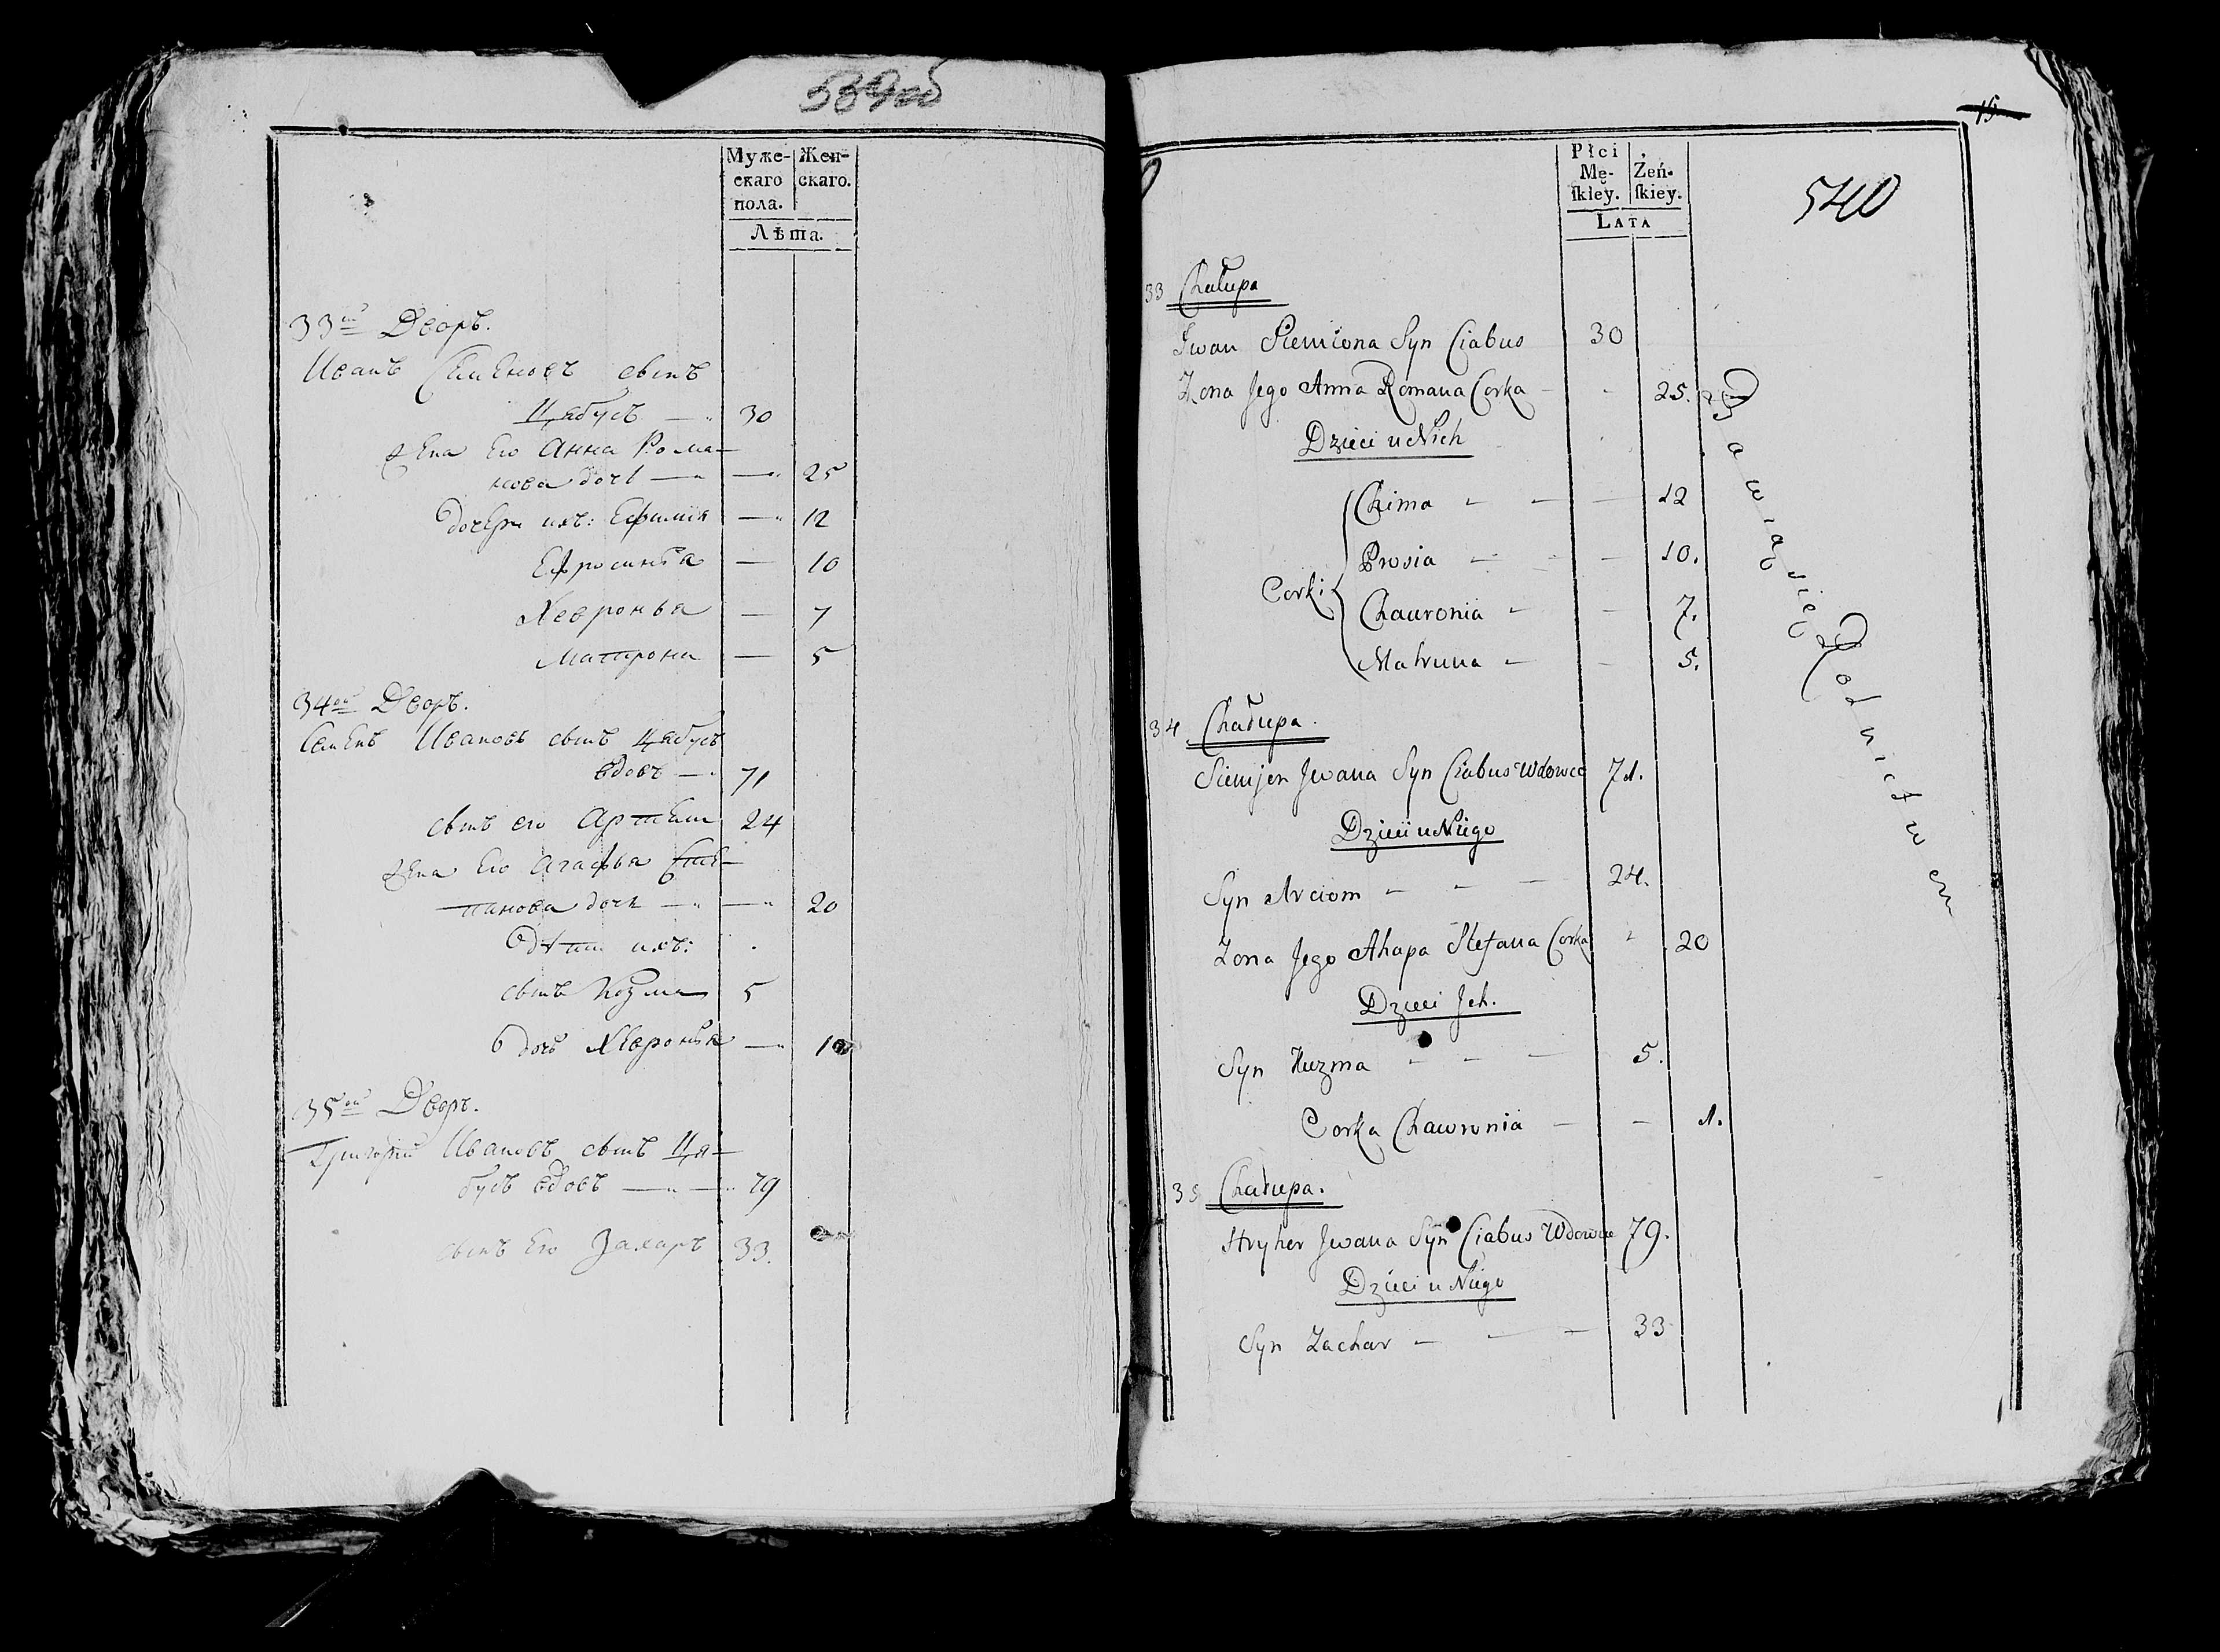 539об
Муже-
скаго
пола.
Жен-
скаго.
Лѣта.
33ій Дворъ.
Иванъ Семеновъ сынъ
Цябусъ — 30
жена Его Анна Рома-
нова дочь — — 25
дочери ихъ: Ефимія — 12
Ефросинья — 10
Хевронья — 7
Матрона — 5
34ой Дворъ.
Семенъ Ивановъ сынъ Цябусъ
вдовъ — 71
сынъ его Артемъ 24
жена Его Агафья Сте-
панова дочь — — 20
дѣти ихъ:
сынъ Козма 5
дочь Хевронья — 1
35ой Дворъ.
Григорій Ивановъ сынъ Ця-
бусъ вдовъ — — 79
сынъ Его Захаръ 33.
15
540
Płci
Mę-
skiey.
Żeń-
skiey.
LATA
33 Chałupa
Jwan Siemiona Syn Ciabus 30
Zona Jego Anna Romana Corka - - 25.
Dzieci u Nich
Corki
Chima - - - 12
Prosia - - - 10.
Chauronia - - 7.
Matruna - - 5.
Bawią się Rolnictwem
34. Chałupa.
Siemjen Jwana Syn Ciabus Wdowiec 71.
Dzieci u Niego
Syn Arciom - - - 24.
Zona Jego Ahapa Stefana Corka - 20
Dzieci Jch.
Syn Kuzma - - - 5.
Corka Chawronia - - 1.
35 Chałupa.
Hryher Jwana Syn Ciabus Wdowiec 79.
Dzieci u Niego
Syn Zachar - - - 33